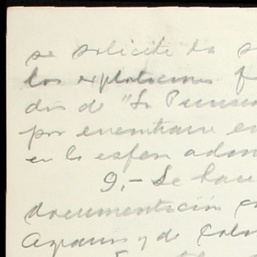 se solicite la s
las explotaciones f
dio de "La
por encontrarse en
en la esfera adon
9.- Se hace
documentación c
Agraria y de Colo